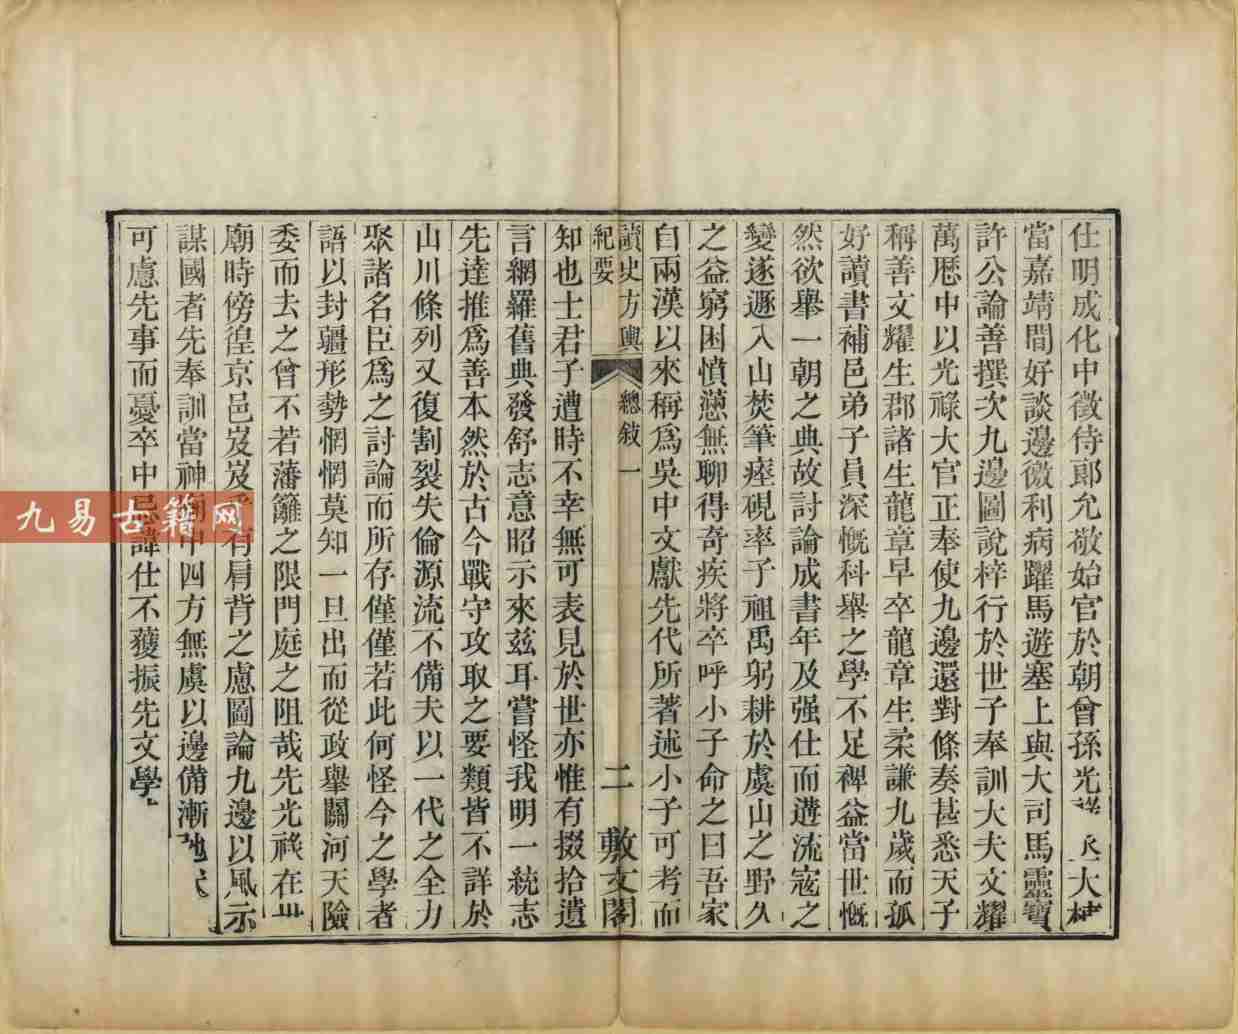 仕明成化中徵侍郎允敬始官於朝曾孫光大
當嘉靖間好談邊徼利病躍馬遊塞上與大司馬靈寶
許公論善撰次九邊圖說梓行於世子奉訓大夫文耀
萬曆中以光祿大官正奉使九邊還對條奏甚悉天子
稱善文耀生郡諸生龍章早卒龍章生柔謙九歲而孤
好讀書補邑弟子員深慨科舉之學不足裨益當世慨
然欲舉一朝之典故討論成書年及强仕而遘流寇之
變遂遯入山焚筆瘞硯率子祖禹躬耕於虞山之野久
之益窮困憤懣無聊得奇疾將卒呼小子命之曰吾家
自兩漢以來稱爲吳中文獻先代所著述小子可考而
讀史方輿
紀要
總敘一
二
敷文閣
知也士君子遭時不幸無可表見於世亦惟有掇拾遺
言網羅舊典發舒志意昭示來茲耳嘗怪我明一統志
先達推爲善本然於古今戰守攻取之要類皆不詳於
山川條列又復割裂失倫源流不備夫以一代之全力
聚諸名臣爲之討論而所存僅僅若此何怪今之學者
語以封疆形勢惘惘莫知一旦出而從政舉關河天險
委而去之曾不若藩籬之限門庭之阻哉先光祿在世
廟時傍徨京邑岌岌乎有肩背之慮圖論九邊以風示
謀國者先奉訓當神廟中四方無虞以邊備漸弛
可慮先事而憂卒中忌諱仕不獲振先文學
九易古籍网